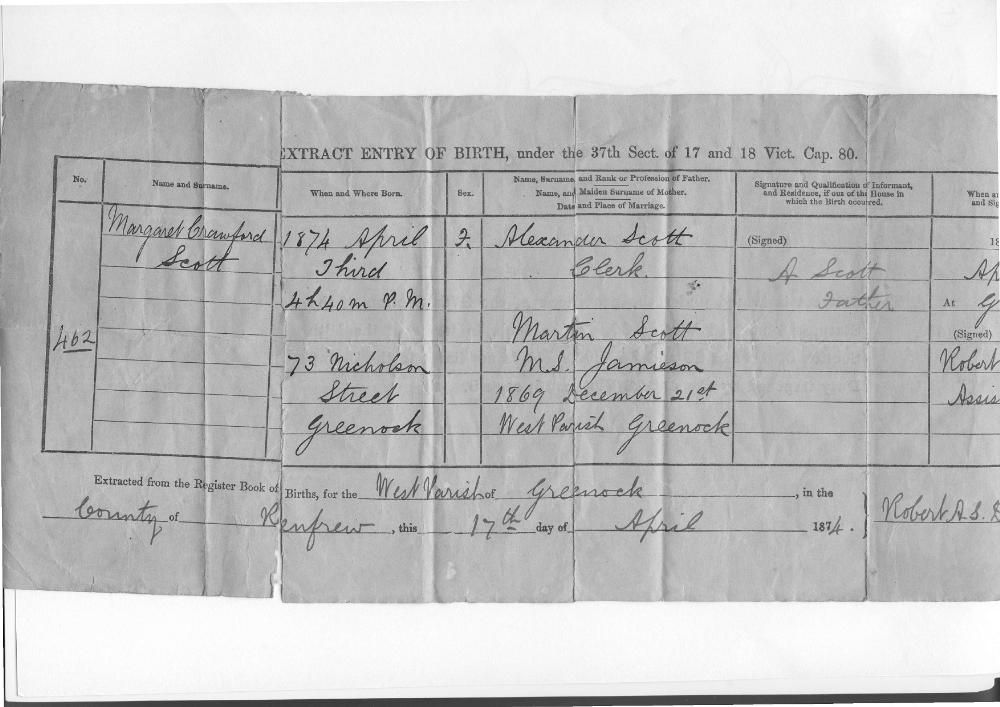 EXTRACT ENTRY OF BIRTH, under the 37th Sect. of 17 and 18 Vict. Cap. 80.
No.
Name and Surname.
When and Where Born.
Sex.
Name, Surname, and Rank or Profession of Father.
Name, and Maiden Surname of Mother.
Date and Place of Marriage.
Signature and Qualification of Informant,
and Residence, if out of the House in
which the Birth occurred.
When a
and Sig
462
Margaret Crawford
Scott
1874 April
Third
4h 40m P.M.
73 Nicholson
Street
Greenock
F.
Alexander Scott
Clerk.
Martin Scott
M.S. Jamieson
1869 December 21st
West Parish Greenock
(Signed)
A Scott
Father
18
Ap
At G
(Signed)
Robert
Assis
Extracted from the Register Book of Births, for the West Parish of Greenock, in the
County of Renfrew, this 17th day of April 1874.
Robert A. S.